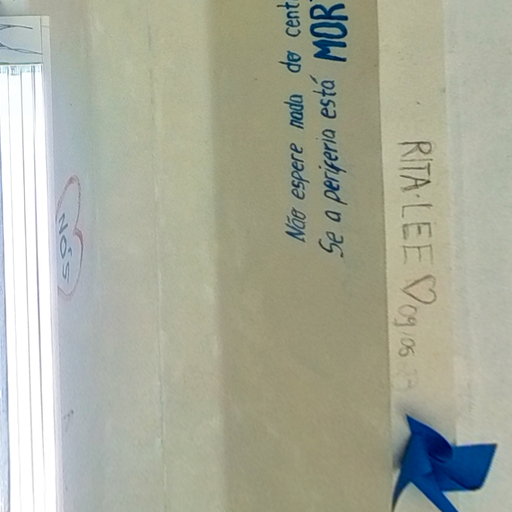 Não espere nada do cent
Se a periferia está MOR
RITA·LEE ♡ 09/05
NÓS